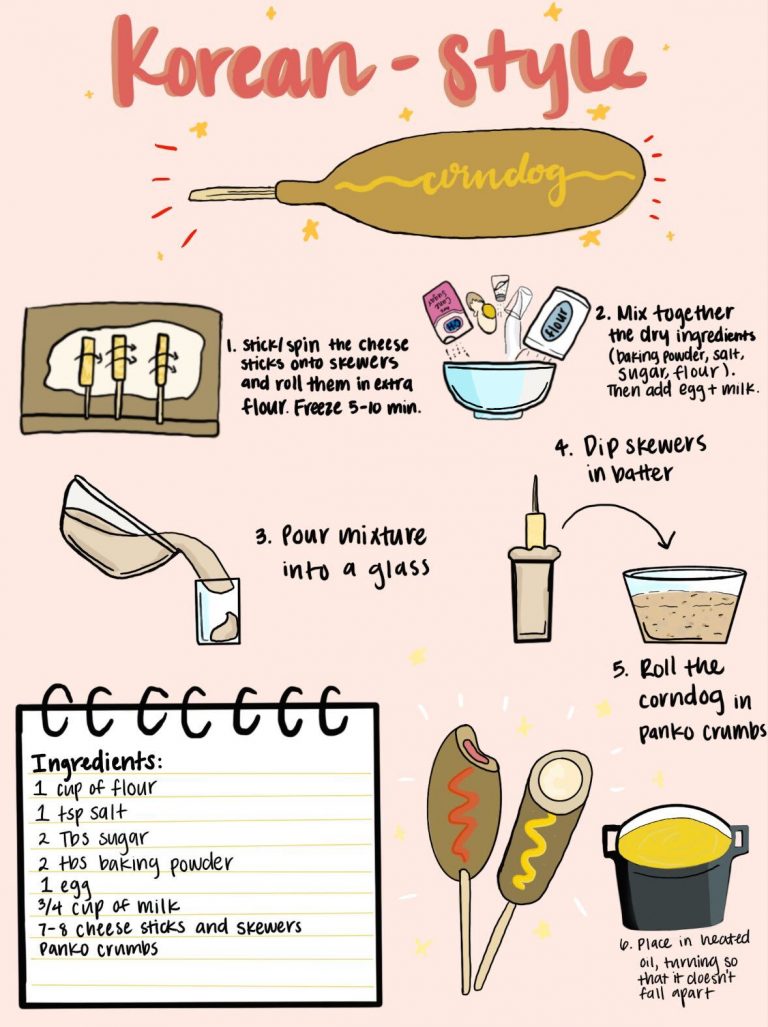 Korean-style
corndog
Pure
Cane
Sugar
CH
flour
1. Stick/spin the cheese
sticks onto skewers
and roll them in extra
flour. Freeze 5-10 min.
2. Mix together
the dry ingredients
(baking powder, salt,
sugar, flour).
Then add egg + milk.
3. Pour mixture
into a glass
4. Dip skewers
in batter
5. Roll the
corndog in
panko crumbs
Ingredients:
1 cup of flour
1 tsp salt
2 Tbs sugar
2 tbs baking powder
1 egg
3/4 cup of milk
7-8 cheese sticks and skewers
Panko crumbs
6. Place in heated
oil, turning so
that it doesn't
fall apart